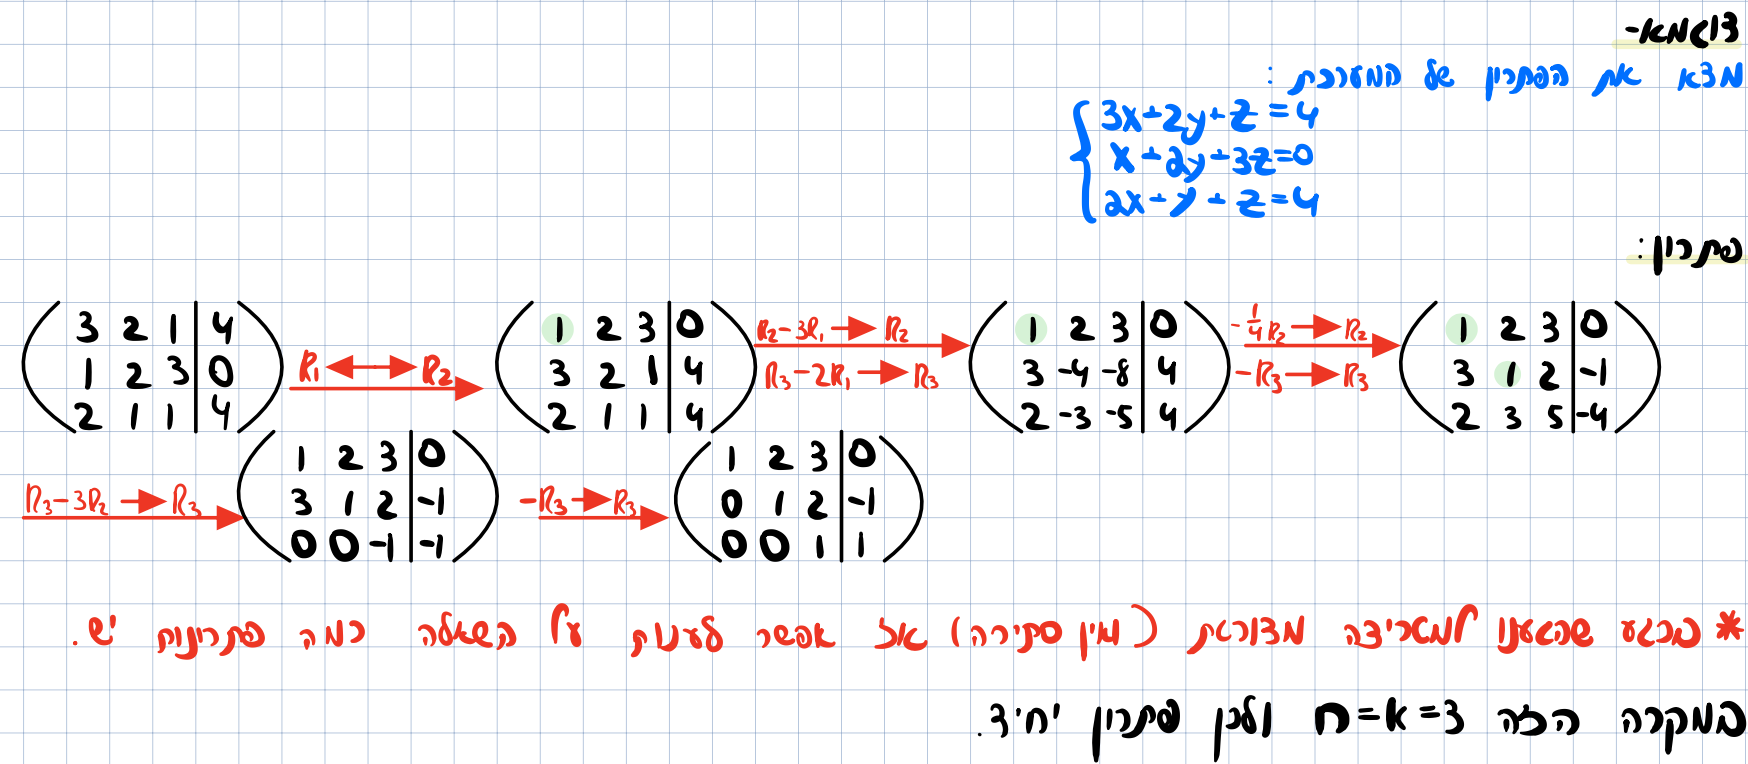 דוגמא-
מצא את הפתרון של המערכת :
3x+2y+z=4
x+2y+3z=0
2x+y+z=4
פתרון:
3 2 1 | 4
1 2 3 | 0
2 1 1 | 4
R₁ ↔ R₂
1 2 3 | 0
3 2 1 | 4
2 1 1 | 4
R₂-3R₁ → R₂
R₃-2R₁ → R₃
1 2 3 | 0
3 -4 -8 | 4
2 -3 -5 | 4
-¼R₂ → R₂
-R₃ → R₃
1 2 3 | 0
3 1 2 | -1
2 3 5 | -4
R₃-3R₂ → R₃
1 2 3 | 0
3 1 2 | -1
0 0 -1 | -1
-R₃ → R₃
1 2 3 | 0
0 1 2 | -1
0 0 1 | 1
* ברגע שהגענו למטריצה מדורגת (ואין סתירה) אז אפשר לענות על השאלה כמה פתרונות יש.
במקרה הזה n=k=3 ולכן פתרון יחיד.